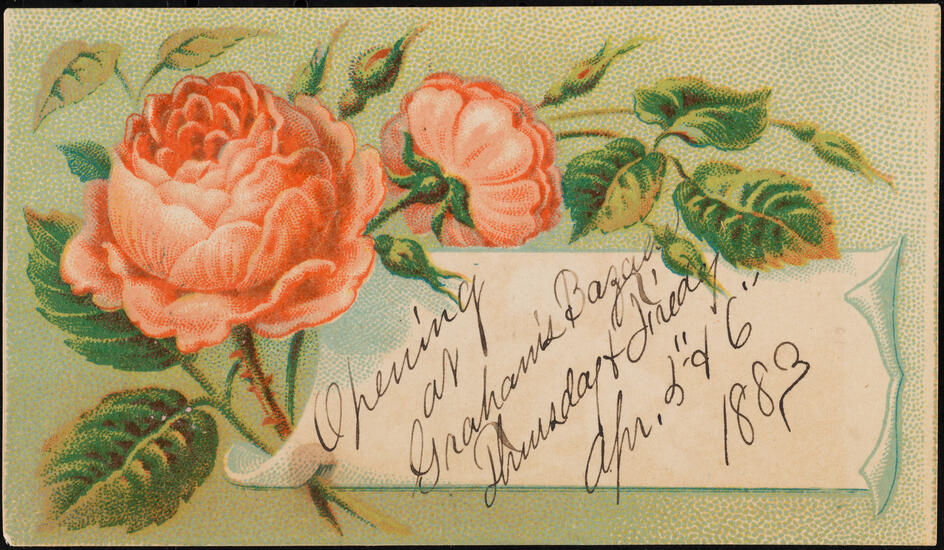 Opening
at
Graham's Bazaar
Thursday & Friday
Apr. 5" & 6"
1883